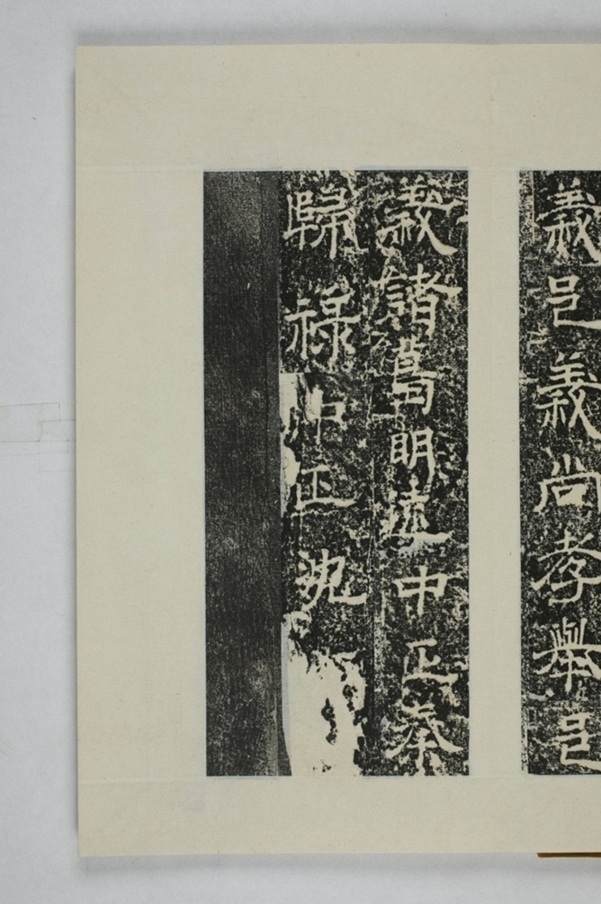 義邑義尚孝舉邑
義諸葛明遠中正秦
歸祿中正沈